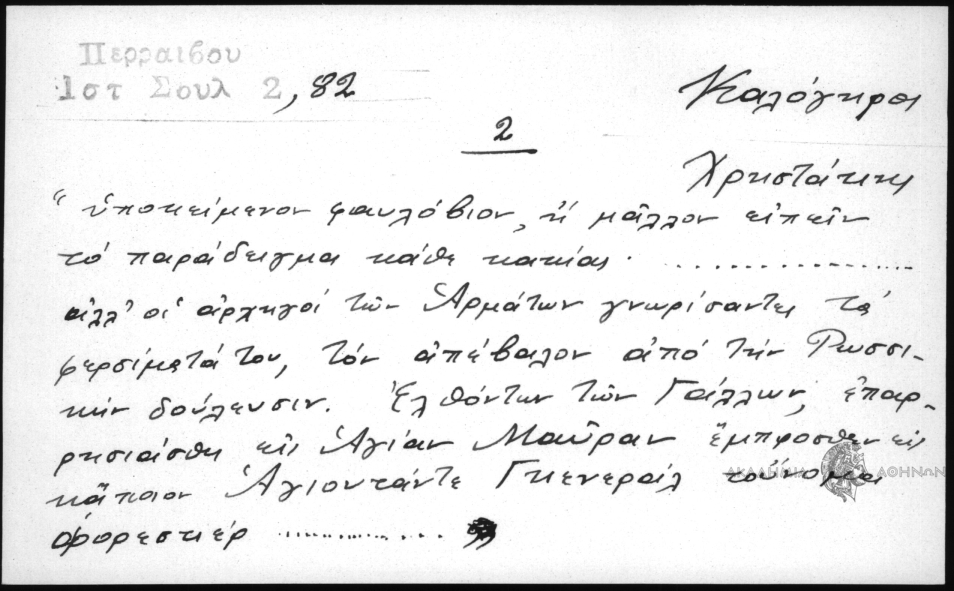 Περραιβου
Ιστ Σουλ 2, 82
Καλόγηροι
2
Χρηστάκης
"ὑποκείμενον φαυλόβιον, ἤ μᾶλλον εἰπεῖν
τό παράδειγμα κάθε κακίας . ................
ἀλλ' οἱ ἀρχηγοί τῶν Ἁρμάτων γνωρίσαντες τά
φερσίματά του, τόν ἀπέβαλον ἀπό τήν Ρωσσι-
κήν δούλευσιν. Ἐλθόντων τῶν Γάλλων, ἐπαρ-
ρησιάσθη εἰς Ἁγίαν Μαῦραν ἔμπροσθεν εἰς
κᾄποιον Ἀγιουτάντε Γκενεράλ τοὔνομα
Φορεστιέρ ................
ΑΚΑΔΗΜΙΑ ΑΘΗΝΩΝ